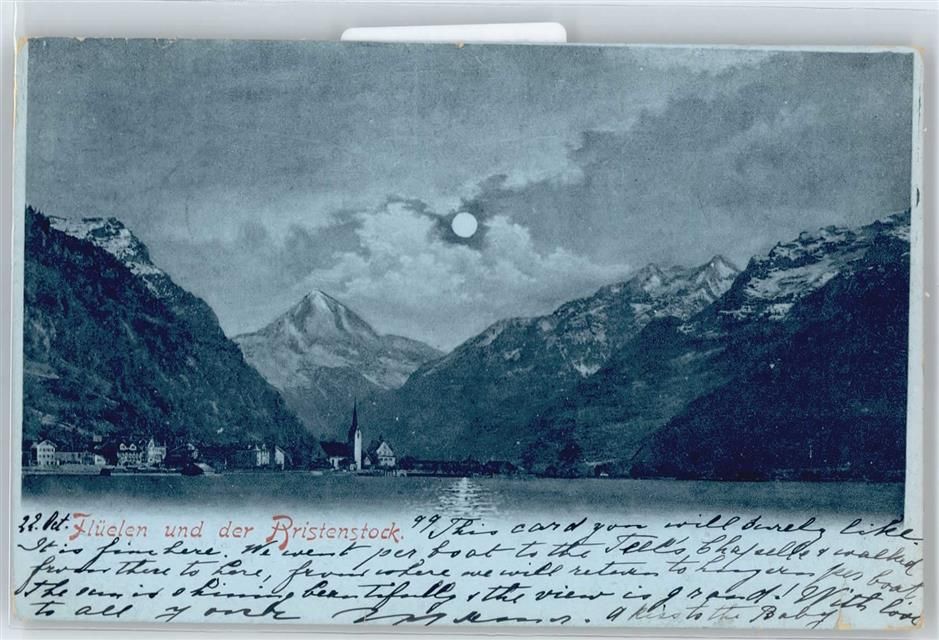 22. Oct. Flüelen und der Bristenstock. 99 This card you will surely like.
It is fine here. We went per boat to the Tell's Chapelle & walked
from there to here, from where we will return to per boat.
The sun is shining beautifully & the view is grand. With love
to all of you A kiss to the Baby